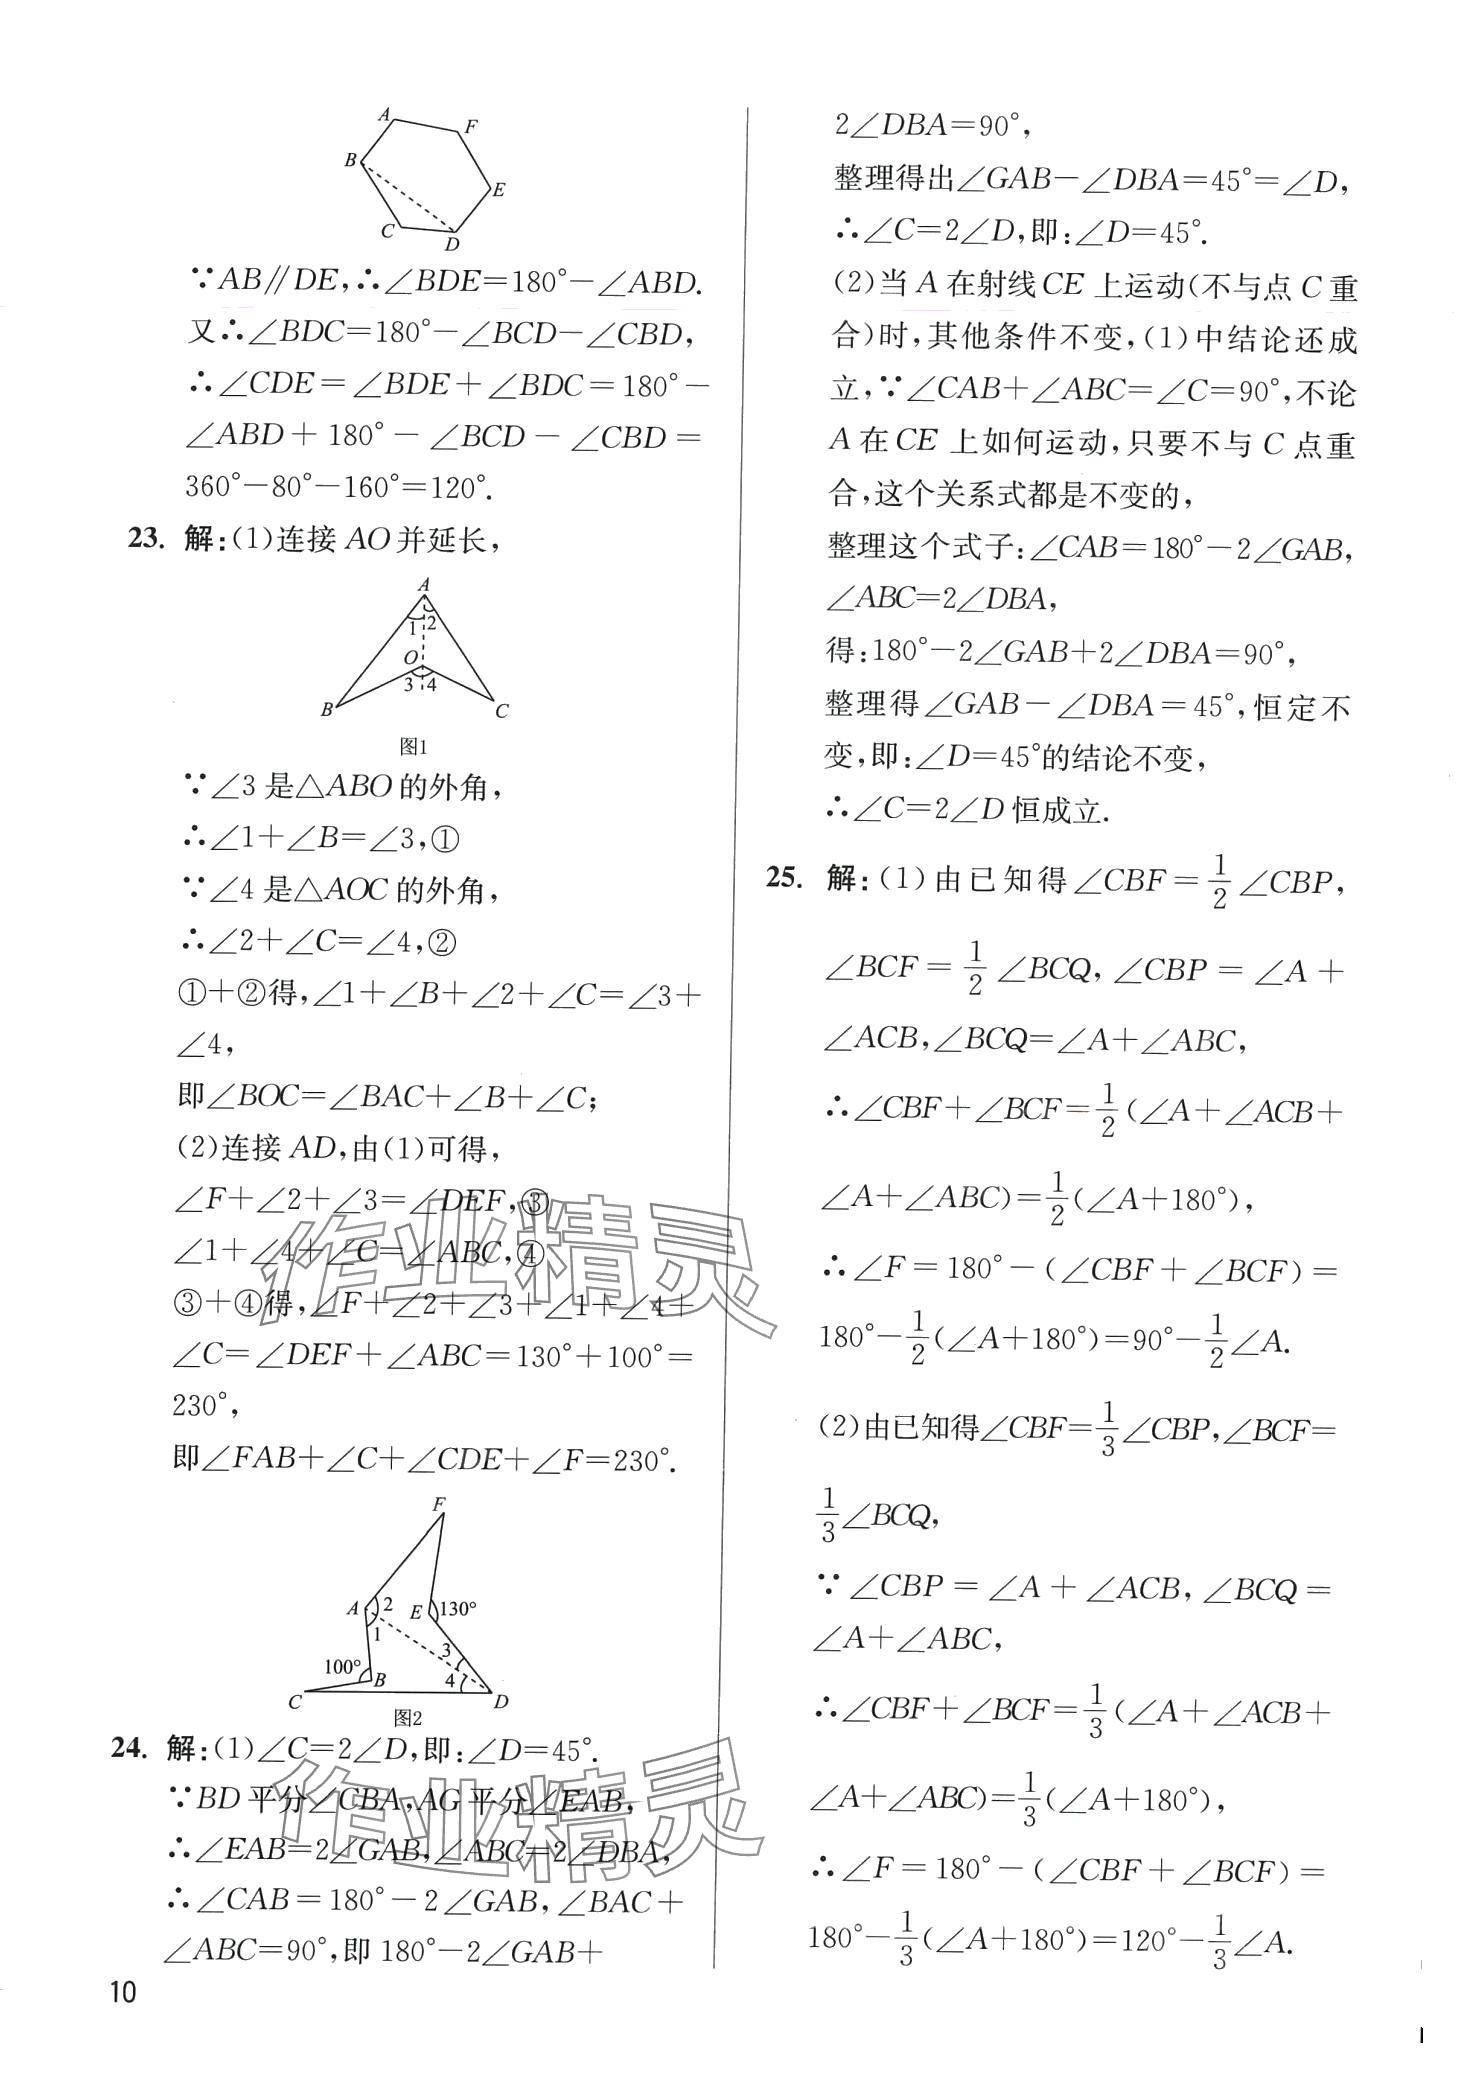 A
F
B
E
C
D
∵AB∥DE,∴∠BDE=180°−∠ABD.
又∴∠BDC=180°−∠BCD−∠CBD,
∴∠CDE=∠BDE+∠BDC=180°−
∠ABD+180°−∠BCD−∠CBD=
360°−80°−160°=120°.
23. 解:(1)连接 AO 并延长,
A
1 2
O
3 4
B
C
图1
∵∠3 是△ABO 的外角,
∴∠1+∠B=∠3,①
∵∠4 是△AOC 的外角,
∴∠2+∠C=∠4,②
①+②得,∠1+∠B+∠2+∠C=∠3+
∠4,
即∠BOC=∠BAC+∠B+∠C;
(2)连接 AD,由(1)可得,
∠F+∠2+∠3=∠DEF,③
∠1+∠4+∠C=∠ABC,④
③+④得,∠F+∠2+∠3+∠1+∠4+
∠C=∠DEF+∠ABC=130°+100°=
230°,
即∠FAB+∠C+∠CDE+∠F=230°.
F
A 2 E 130°
1
3
100° B 4
C D
图2
24. 解:(1)∠C=2∠D,即:∠D=45°.
∵BD 平分∠CBA,AG 平分∠EAB,
∴∠EAB=2∠GAB,∠ABC=2∠DBA,
∴∠CAB=180°−2∠GAB,∠BAC+
∠ABC=90°,即 180°−2∠GAB+
2∠DBA=90°,
整理得出∠GAB−∠DBA=45°=∠D,
∴∠C=2∠D,即:∠D=45°.
(2)当 A 在射线 CE 上运动(不与点 C 重
合)时,其他条件不变,(1)中结论还成
立,∵∠CAB+∠ABC=∠C=90°,不论
A 在 CE 上如何运动,只要不与 C 点重
合,这个关系式都是不变的,
整理这个式子:∠CAB=180°−2∠GAB,
∠ABC=2∠DBA,
得:180°−2∠GAB+2∠DBA=90°,
整理得∠GAB−∠DBA=45°,恒定不
变,即:∠D=45°的结论不变,
∴∠C=2∠D 恒成立.
25. 解:(1)由已知得∠CBF=1/2∠CBP,
∠BCF=1/2∠BCQ,∠CBP=∠A+
∠ACB,∠BCQ=∠A+∠ABC,
∴∠CBF+∠BCF=1/2(∠A+∠ACB+
∠A+∠ABC)=1/2(∠A+180°),
∴∠F=180°−(∠CBF+∠BCF)=
180°−1/2(∠A+180°)=90°−1/2∠A.
(2)由已知得∠CBF=1/3∠CBP,∠BCF=
1/3∠BCQ,
∵∠CBP=∠A+∠ACB,∠BCQ=
∠A+∠ABC,
∴∠CBF+∠BCF=1/3(∠A+∠ACB+
∠A+∠ABC)=1/3(∠A+180°),
∴∠F=180°−(∠CBF+∠BCF)=
180°−1/3(∠A+180°)=120°−1/3∠A.
作业精灵
作业精灵
10